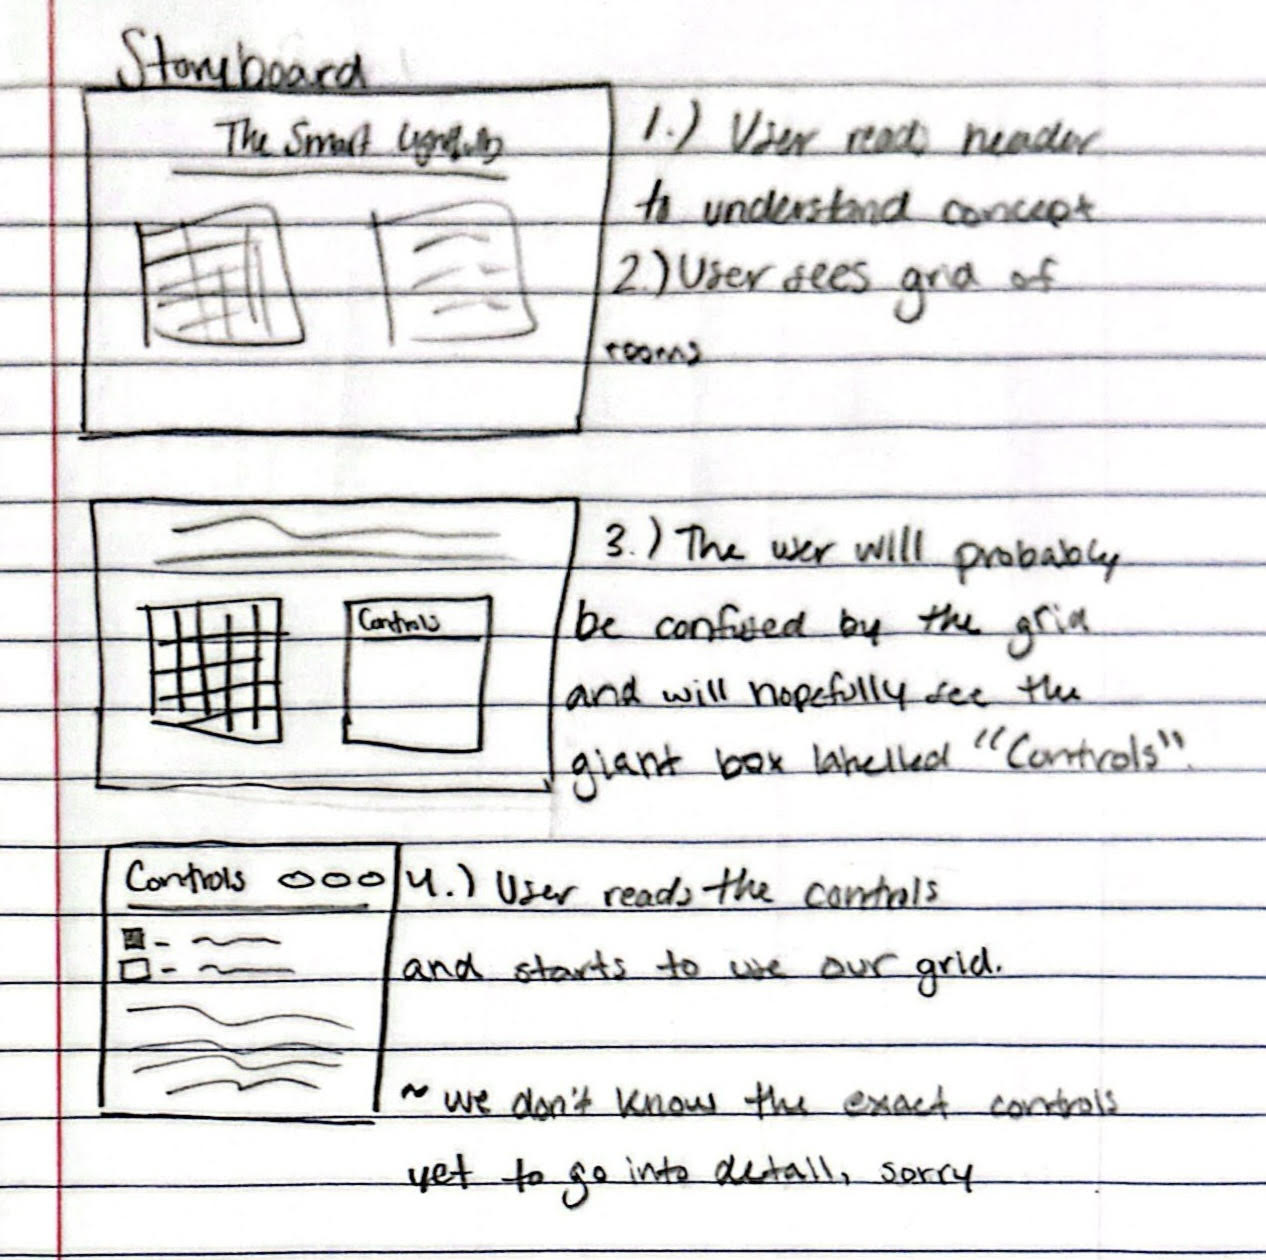 Storyboard
The Smart
1.) User reads header
to understand concept
2.) User sees grid of
rooms
3.) The user will probably
be confused by the grid
and will hopefully see the
giant box labelled "Controls".
Controls
4.) User reads the controls
and starts to use our grid.
~ we don't know the exact controls
yet to go into detail, sorry
Controls